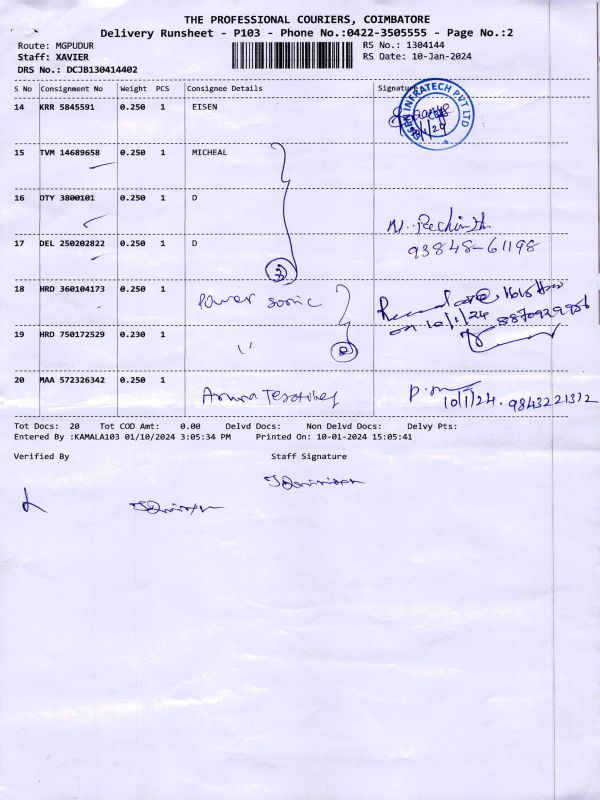 THE PROFESSIONAL COURIERS, COIMBATORE
Delivery Runsheet - P103 - Phone No.:0422-3505555 - Page No.:2
Route: MGPUDUR
RS No.: 1304144
Staff: XAVIER
RS Date: 10-Jan-2024
DRS No.: DCJB130414402
S No Consignment No Weight PCS Consignee Details Signature
14 KRR 5845591 0.250 1 EISEN
INFRATECH PVT LTD
15 TVM 14689658 0.250 1 MICHEAL
16 DTY 3800101 0.250 1 D
17 DEL 250202822 0.250 1 D
93848-61198
3
18 HRD 360104173 0.250 1 Power sonic
on 10/1/24 8870929986
19 HRD 750172529 0.230 1 "
2
20 MAA 572326342 0.250 1
10/1/24. 9843221312
Tot Docs: 20 Tot COD Amt: 0.00 Delvd Docs: Non Delvd Docs: Delvy Pts:
Entered By :KAMALA103 01/10/2024 3:05:34 PM Printed On: 10-01-2024 15:05:41
Verified By Staff Signature